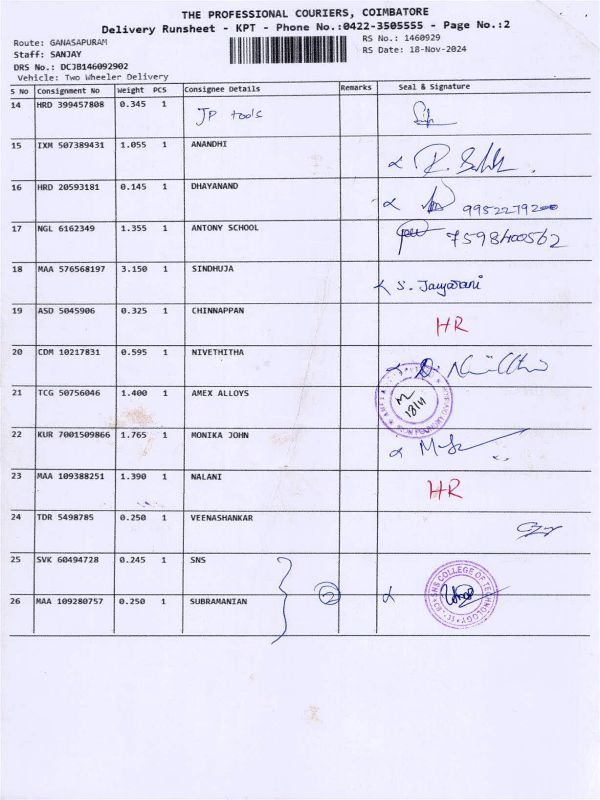 THE PROFESSIONAL COURIERS, COIMBATORE
Delivery Runsheet - KPT - Phone No.:0422-3505555 - Page No.:2
Route: GANASAPURAM
RS No.: 1460929
Staff: SANJAY
RS Date: 18-Nov-2024
DRS No.: DCJB146092902
Vehicle: Two Wheeler Delivery
S No Consignment No Weight PCS Consignee Details Remarks Seal & Signature
14 HRD 399457808 0.345 1 JP tools
15 IXM 507389431 1.055 1 ANANDHI
16 HRD 20593181 0.145 1 DHAYANAND 9952279200
17 NGL 6162349 1.355 1 ANTONY SCHOOL 7598400562
18 MAA 576568197 3.150 1 SINDHUJA S. Jayarani
19 ASD 5045906 0.325 1 CHINNAPPAN HR
20 CDM 10217831 0.595 1 NIVETHITHA
21 TCG 50756046 1.400 1 AMEX ALLOYS 18/11
22 KUR 7001509866 1.765 1 MONIKA JOHN
23 MAA 109388251 1.390 1 NALANI HR
24 TDR 5498785 0.250 1 VEENASHANKAR
25 SVK 60494728 0.245 1 SNS
SNS COLLEGE OF TECHNOLOGY
26 MAA 109280757 0.250 1 SUBRAMANIAN 2